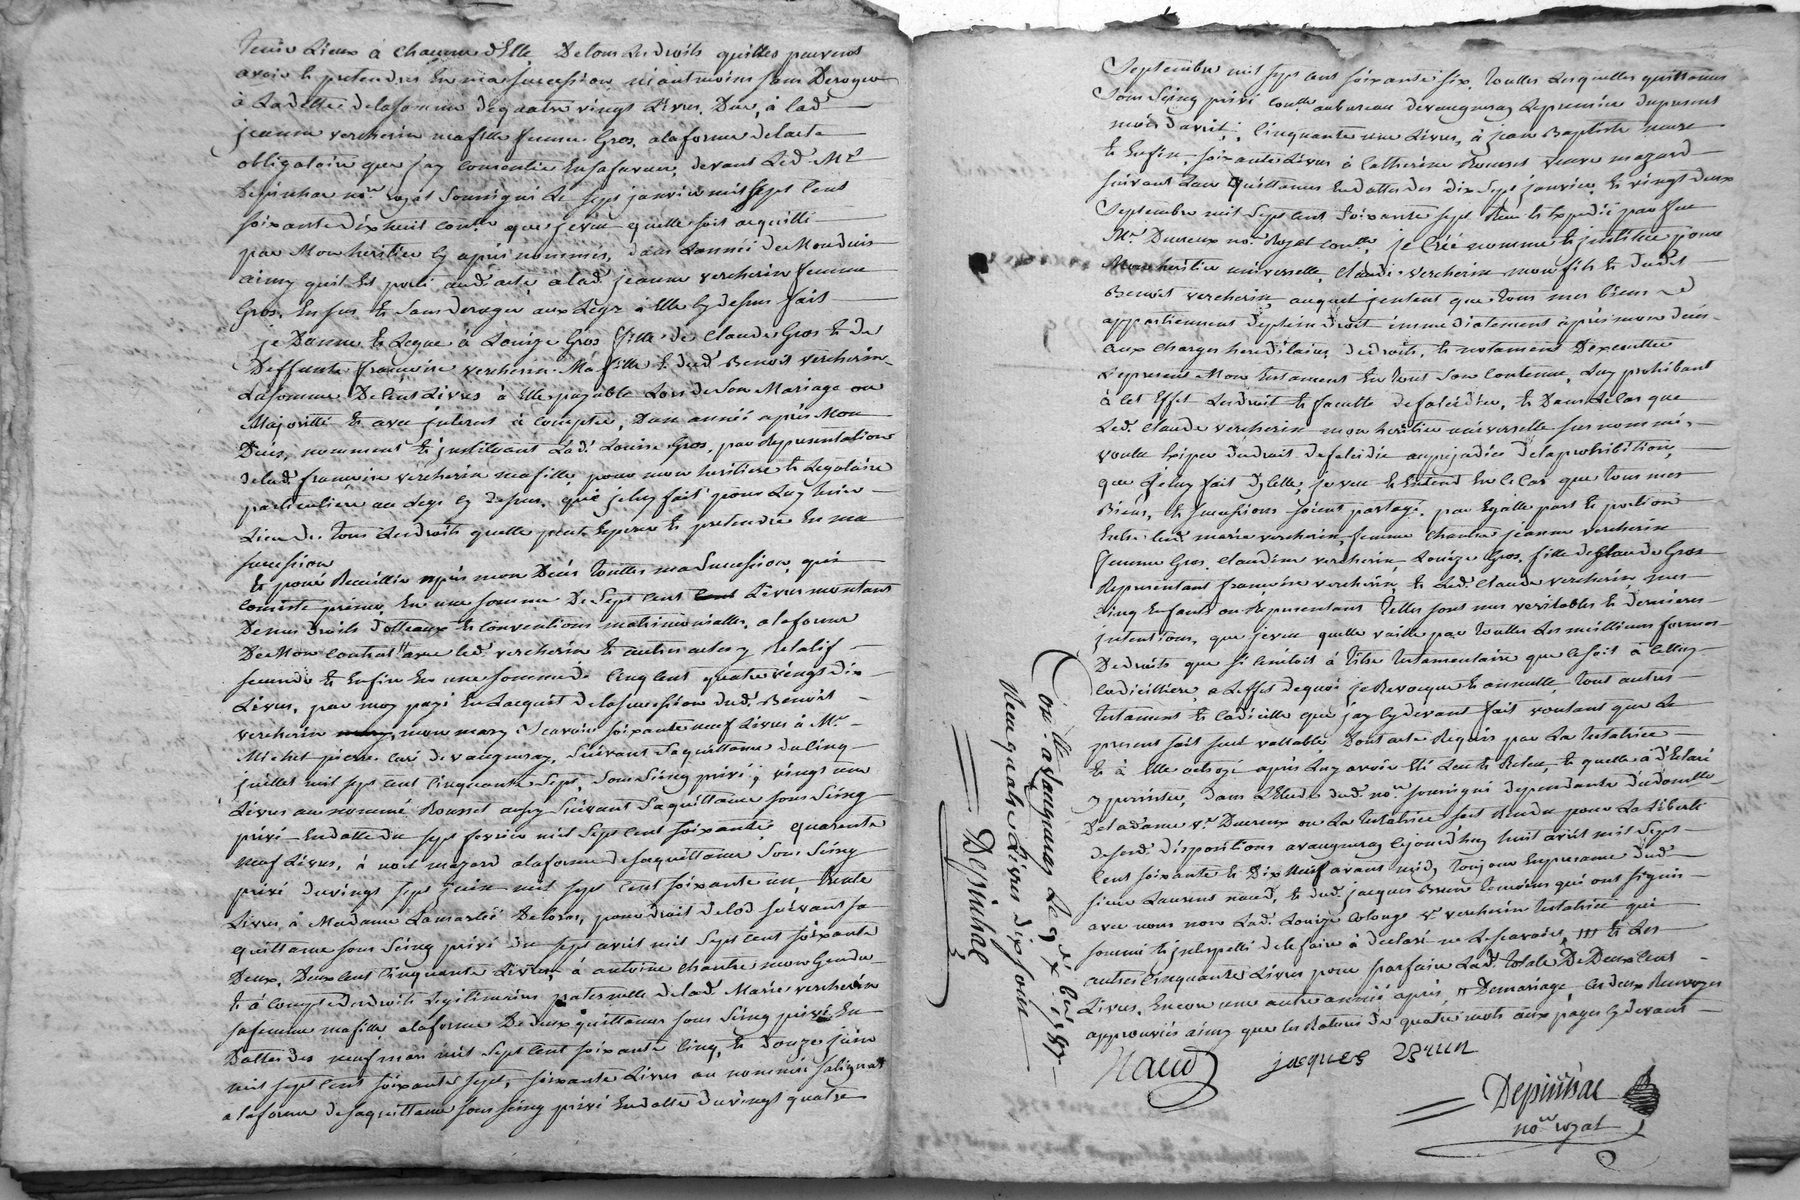 tenir Lieux à chacune d'Elle, De tous Les droits quelles peuvent
avoir et pretendres En ma succession, néantmoins sans Deroger
à La dette de la somme de quatre vingt Livres Due, à lad.
jeanne vercherin ma fille femme Gros, a la forme de l'acte
obligatoire que j'ay consentie En sa faveur, devant Led. Me
Depinhac no.re royal soussigné Le sept janvier mil sept cent
soixante dix huit cont.lé que je veu quelle soit acquitté
par Mon heritier cy après nommés, dans L'année de Mon duis
ainsy quil Est porté aud. acte, a lad. jeanne vercherin femme
Gros, En sus et sans deroger aux Legs à Elle cy dessus fait
je Donne et Legue à Louize Gros fille de Claude Gros et de
Deffunte francoise vercherin Ma fille et dud. Benoit vercherin
La somme De cent Livres à Elle payable Lors de Son Mariage ou
Majorité et avec jnterest à compter, D'un année après Mon
Décès, nommant et jnstituant Lad. Louise Gros, par Representation
de lad. francoise vercherin ma fille pour mon heritiere et Legataire
particuliere au Legs cy dessus, que je luy fait pour Luy tenir
Lieu de tous Les droits quelle peut Esperer et pretendre En ma
succession
Et pour Recueillir après mon Décès touttes ma Succession, qui
consiste primo, En une somme De Sept cent cent Livres montant
De mes droits dotteaux et conventions matrimonialles, a la forme
De Mon contrat avec led. vercherin et autres actes y Relatif
secundo et Enfin En une somme de Cinq cent quatre vingt dix
Livres, par moy payé En L'acquit de la succession dud. Benoit
vercherin mary, mon mary Scavoir soixante neuf Livres à Mr.
Michel pierre curé de vaugneray, Suivant Sa quittance du cinq
juillet mil sept cent cinquante Sept, Sous Seing privé; vingt une
Livres au nommé Rousset aussy Suivant Sa quittance sous Seing
privé En datte du sept fevrier mil sept cent soixante; quarante
neuf Livres, à noel mazard a la forme de sa quittance Sous Seing
privé du vingt sept juin mil sept cent soixante un, trente
Livres à Madame Lamartée Delorm, pour droit de lod suivant sa
quittance sous Seing privé du sept avril mil Sept cent soixante
Deux, Deux cent cinquante Livres à antoine chantre mon Gendre
Et à compte des droits Legitimaires paternelle de lad. Marie vercherin
sa femme ma fille a la forme De deux quittances sous Seing privé En
Dattes des neuf mars mil sept cent soixante cinq, et douze juin
mil sept cent soixante sept, soixante Livres au nommé salignat
a la forme de sa quittance sous Seing privé En datte du vingt quatre
Septembre mil sept cent soixante six. touttes Lesquelles quittances
sous Seing privé cont.lé au bureau de vaugneray Le premier du present
mois d'avril; Cinquante une Livres, à jean Baptiste
Et Enfin, soixante Livres à Catherine Rousset veuve mazard
suivant Deux quittances En dattes des dix Sept janvier, et vingt deux
Septembre mil Sept cent Soixante sept Reçu et Expedié par feu
Me. Ducreux no.re Royal cont.lé, je Crée nomme et jnstitue pour
Mon heritier universelle, Claude vercherin mon fils et dudit
Benoit vercherin, auquel j'entent que tous mes biens
appartiennent de plein droit immediatement après mon Décès
aux charges hereditaires de droits, et notament D'executter
Le present Mon testament En tout Son Contenue, Luy prohibant
à Cet Effet Le droit et faculté de falcidie, et Dans Le Cas que
Led. claude vercherin mon heritier universelle sus nommé,
voulu Exiger Le droit de falcidie au prejudice de la prohibition,
que je luy fait d'jcelle, je veu et Entend En Ce Cas que tous mes
Biens, et successions soient partagé, par Egalle part et portion
Entre led. marie vercherin, femme Chantre jeanne vercherin
femme Gros, Claudine vercherin Louize Gros, fille de Claude Gros
Representant françoise vercherin, et Led. Claude vercherin mes
Cinq Enfants ou Representant telles sont mes veritables et dernieres
jntentions, que je veu quelle vaille par touttes Les meillieurs formes
De droits que si ce n'étoit à titre testamentaire que ce soit à Celluy
Codicillaire, a L'effet de quoi je Revocque et annulle, tout autres
testament et codicille que j'ay cy devant fait voulant que Le
present soit seul vallable Dont acte Requis par La testatrice
Et à Elle octroyé après Luy avoir Eté Leu et Releu, Et quelle à Declaré
y persister, Dans L'Etude dud. no.re soussigné dependante du domicille
De la dame v.e Ducreux ou La testatrice sest Rendu pour La Liberté
de ses d. dispositions a vaugneray cejourd'huy huit avril mil Sept
Cent soixante et Dix Neuf avant midy toujours En presence dud.
sieur Laurens naud, et dud. jacques Brun temoins qui ont signés
avec nous non Lad. Louize v.e vercherin testatrice qui
sommé et jnterpellé de le faire à declaré ne Le scavoir, III et Les
autres Cinquante Livres pour parfaire Lad. totale De Deux Cent
Livres, Encore une autre année après, II De mariage, Ces deux Renvoyes
approuvés ainsy que les Ratures de quatre mots aux pages cy devant
Naud jacques Brun
Depinhac
no.re royal
Con.llé a vaugneray Le 9 d.
Reçu quatre Livres dix sols
Depinhac